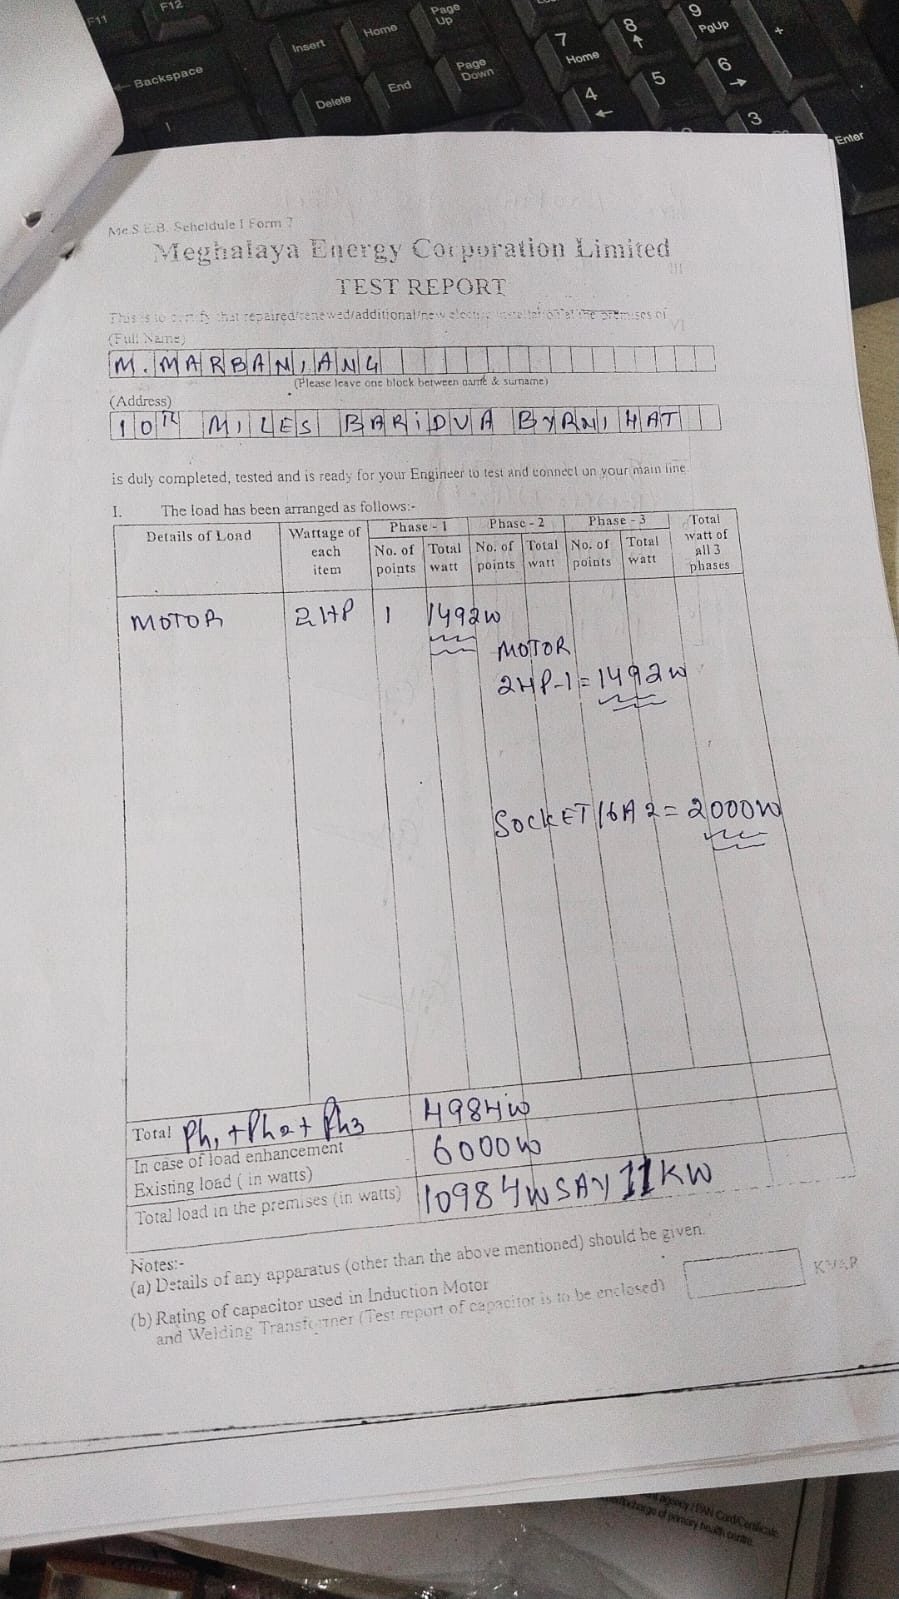 F11
F12
Backspace
Insert
Home
Page Up
Delete
End
Page Down
7 Home
8
9 PgUp
+
4
5
6
3
Enter
Me.S.E.B. Scheldule I Form 7
Meghalaya Energy Corporation Limited
TEST REPORT
This is to certify that repaired/renewed/additional/new electric installation at the premises of
(Full Name)
M. MARBANIANG
(Please leave one block between name & surname)
(Address)
10TH MILES BARIDUA BYRNIHAT
is duly completed, tested and is ready for your Engineer to test and connect on your main line
I. The load has been arranged as follows:-
Details of Load Wattage of each item Phase - 1 Phase - 2 Phase - 3 Total watt of all 3 phases
No. of points Total watt No. of points Total watt No. of points Total watt
MOTOR 2HP 1 1492W
MOTOR
2HP-1=1492W
SOCKET 16A 2= 2000W
Total Ph1+Ph2+Ph3 4984W
In case of load enhancement
Existing load ( in watts) 6000W
Total load in the premises (in watts) 10984W SAY 11KW
Notes:-
(a) Details of any apparatus (other than the above mentioned) should be given.
(b) Rating of capacitor used in Induction Motor
and Welding Transformer (Test report of capacitor is to be enclosed) KVAR
agency / PAN Card/Certificate
of primary health centre.